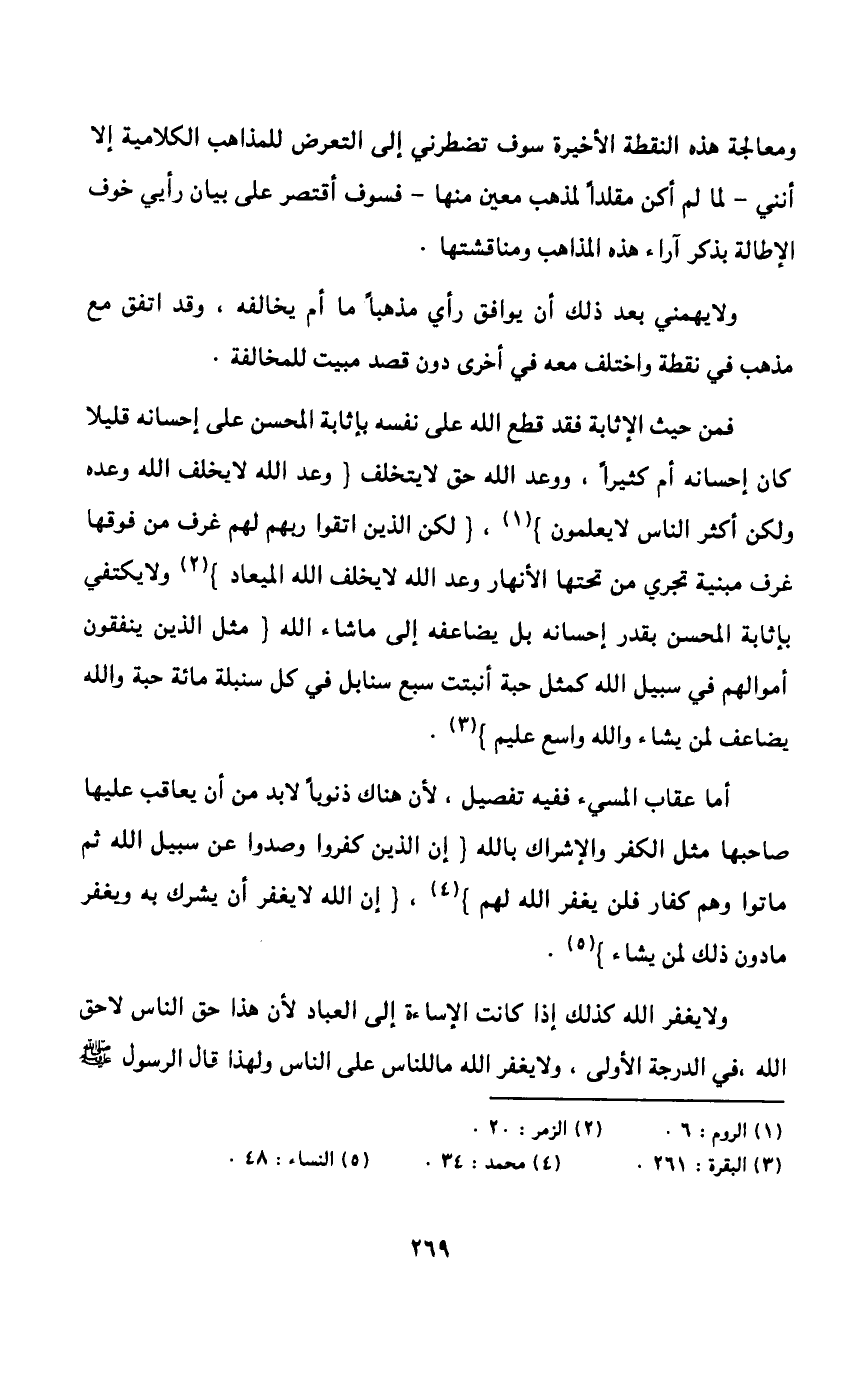 ومعالجة هذه النقطة الأخيرة سوف تضطرني إلى التعرض للمذاهب الكلامية إلا
أنني - لما لم أكن مقلداً لمذهب معين منها - فسوف أقتصر على بيان رأيي خوف
الإطالة بذكر آراء هذه المذاهب ومناقشتها .
ولايهمني بعد ذلك أن يوافق رأي مذهباً ما أم يخالفه ، وقد اتفق مع
مذهب في نقطة واختلف معه في أخرى دون قصد مبيت للمخالفة .
فمن حيث الإثابة فقد قطع الله على نفسه بإثابة المحسن على إحسانه قليلا
كان إحسانه أم كثيراً ، ووعد الله حق لايتخلف { وعد الله لايخلف الله وعده
ولكن أكثر الناس لايعلمون }(١) ، { لكن الذين اتقوا ربهم لهم غرف من فوقها
غرف مبنية تجري من تحتها الأنهار وعد الله لايخلف الله الميعاد }(٢) ولايكتفي
بإثابة المحسن بقدر إحسانه بل يضاعفه إلى ماشاء الله { مثل الذين ينفقون
أموالهم في سبيل الله كمثل حبة أنبتت سبع سنابل في كل سنبلة مائة حبة والله
يضاعف لمن يشاء والله واسع عليم }(٣) .
أما عقاب المسيء ففيه تفصيل ، لأن هناك ذنوباً لابد من أن يعاقب عليها
صاحبها مثل الكفر والإشراك بالله { إن الذين كفروا وصدوا عن سبيل الله ثم
ماتوا وهم كفار فلن يغفر الله لهم }(٤) ، { إن الله لايغفر أن يشرك به ويغفر
مادون ذلك لمن يشاء }(٥) .
ولايغفر الله كذلك إذا كانت الإساءة إلى العباد لأن هذا حق الناس لاحق
الله ،في الدرجة الأولى ، ولايغفر الله ماللناس على الناس ولهذا قال الرسول ﷺ
(١) الروم : ٦ . (٢) الزمر : ٢٠ .
(٣) البقرة : ٢٦١ . (٤) محمد : ٣٤ . (٥) النساء : ٤٨ .
٢٦٩